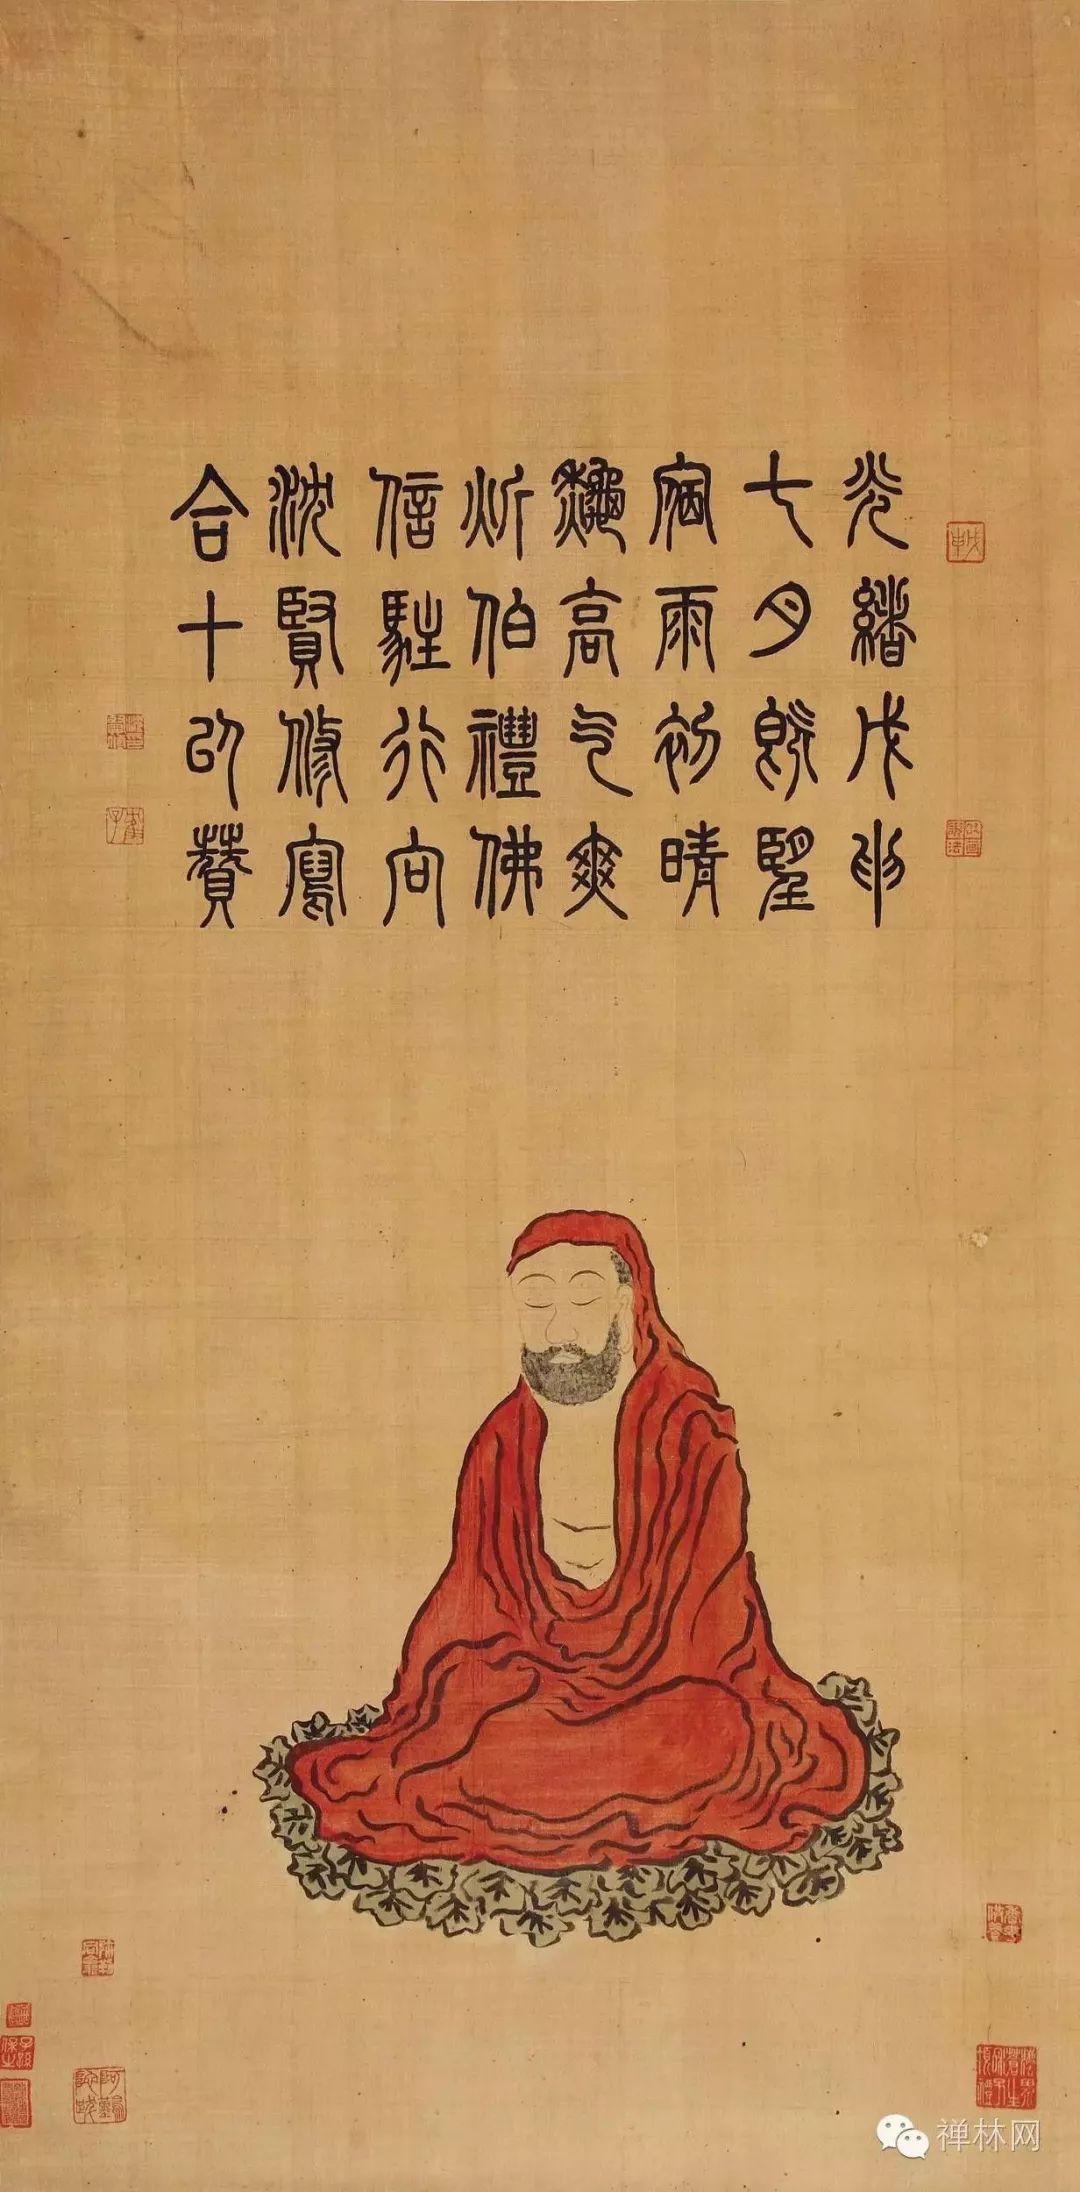 光緒戊申
七月既望
宿雨初晴
龝高气爽
炘伯禮佛
信駐行向
沈賢修寫
合十以贊
禅林网